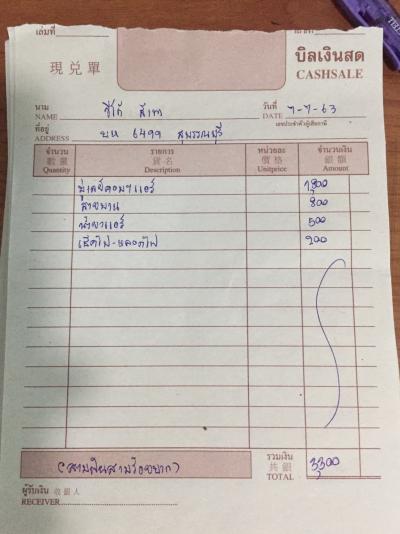 เล่มที่
現兌單
บิลเงินสด
CASHSALE
นาม
NAME
ซีโก้ สีเทา
วันที่
DATE
7-7-63
เลขประจำตัวผู้เสียภาษี
ที่อยู่
ADDRESS
บห 6499 สุพรรณบุรี
จำนวน รายการ หน่วยละ จำนวนเงิน
數量 貨名 價格 銀額
Quantity Description Unitprice Amount
มู่เลย์คอมฯแอร์ 1,800
สายพาน 800
น้ำยาแอร์ 500
เช็คไฟ-หลอดไฟ 200
(สามพันสามร้อยบาท)
รวมเงิน
共銀
TOTAL
3,300
ผู้รับเงิน 收銀人
RECEIVER